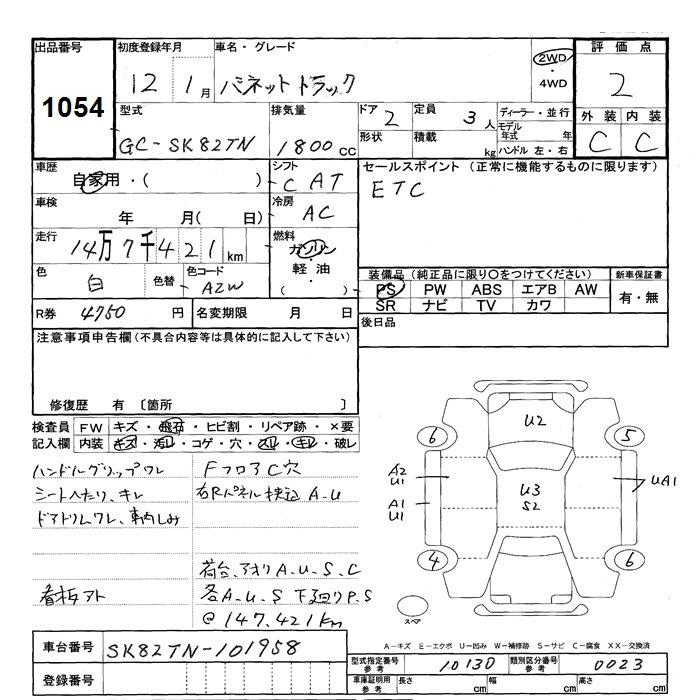 出品番号 初度登録年月 車名・グレード 評価点
1054 12 1月 バネットトラック 2WD ・ 4WD 2
型式 排気量 ドア 2 定員 3人 ディーラー・並行 外装 内装
GC-SK82TN 1800cc 形状 積載 kg モデル年式 年 ハンドル 左・右 C C
車歴 自家用・( ) シフト C AT セールスポイント (正常に機能するものに限ります)
車検 年 月( 日) 冷房 AC ETC
走行 14万7千421km 燃料 ガソリン・軽油 ( )
色 白 色替 色コード AZW 装備品 (純正品に限り〇をつけてください) 新車保証書
PS PW ABS エアB AW 有・無
SR ナビ TV カワ
R券 4750円 名変期限 月 日 後日品
注意事項申告欄 (不具合内容等は具体的に記入して下さい)
修復歴 有 〔箇所 〕
検査員 FW キズ・飛石・ヒビ割・リペア跡・×要
記入欄 内装 キズ・汚レ・コゲ・穴・スレ・キレ・破レ
ハンドルグリップワレ Fフロア C穴
シートヘたり、キレ 右Rパネル 押込 A-U
ドアトリムワレ、車内しみ
荷台、アオリ A-U-S-C
看板アト 各A-U-S 下廻りP.S
@147.421km
U2
6 5
A2 U1 U3 S2 UA1
A1 U1
4 6
スペア
A-キズ E-エクボ U-凹み W-補修跡 S-サビ C-腐食 XX-交換済
車台番号 SK82TN-101958
型式指定番号 参考 1013D 類別区分番号 参考 0023
登録番号 車庫証明用 参考 長さ cm 幅 cm 高さ cm